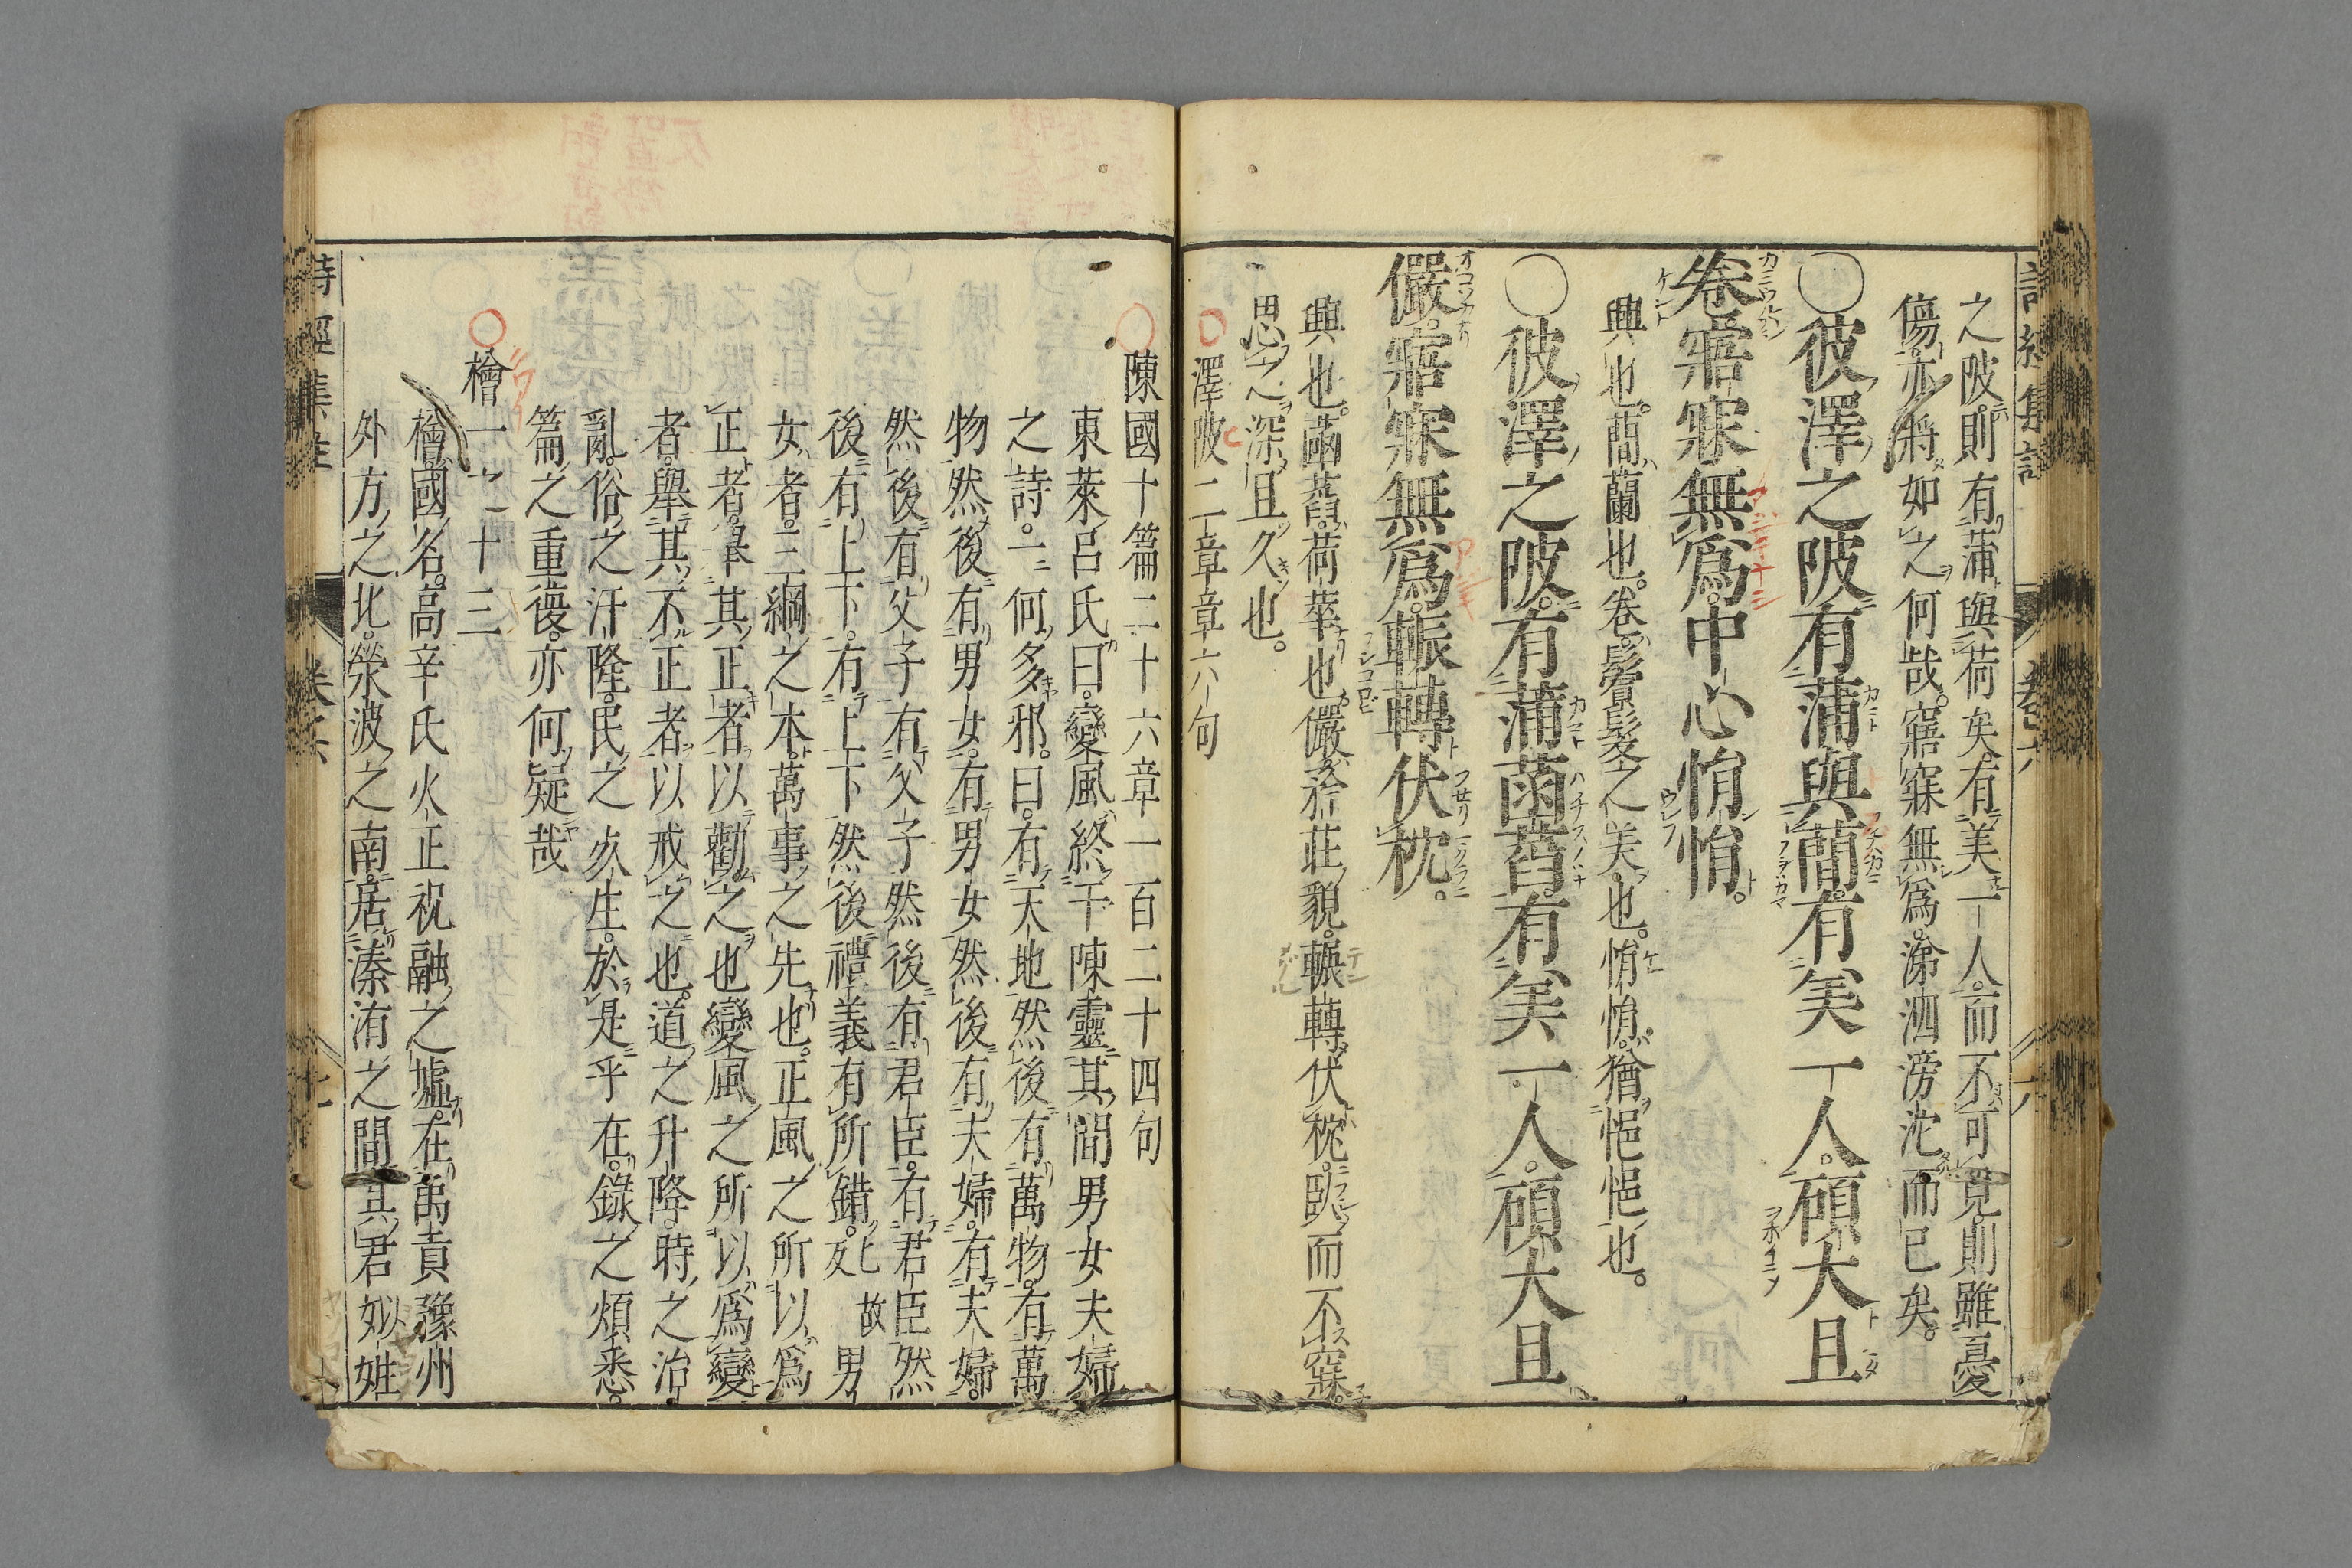 之陂。則有蒲與荷矣。有美一人。而不可見。則雖憂
傷。亦將如之何哉。寤寐無爲。涕泗滂沱而已矣。
○彼澤之陂。有蒲與蕑。有美一人。碩大且
卷。寤寐無爲。中心悁悁。
興也。蕑蘭也。卷。鬢髮之美也。悁悁。猶悒悒也。
○彼澤之陂。有蒲菡萏。有美一人。碩大且
儼。寤寐無爲。輾轉伏枕。
興也。菡萏。荷華也。儼矜莊貌。輾轉伏枕。臥而不寐。
思之深且久也。
○澤陂二章章六句
○陳國十篇二十六章一百二十四句
東萊呂氏曰。變風終于陳靈。其間男女夫婦
之詩。一何多邪。曰。有天地然後有萬物。有萬
物然後有男女。有男女然後有夫婦。有夫婦。
然後有父子有父子然後有君臣。有君臣然
後有上下。有上下然後禮義有所錯。男
女者。三綱之本。萬事之先也。正風之所以爲
正者。舉其正者以勸之也變風之所以爲變
者。舉其不正者以戒之也。道之升降。時之治
亂。俗之汙隆。民之死生。於是乎在。錄之煩悉。
篇之重復。亦何疑哉
○檜一之十三
檜國名。高辛氏火正祝融之墟。在禹貢豫州
外方之北。滎波之南。居溱洧之間其君妘姓